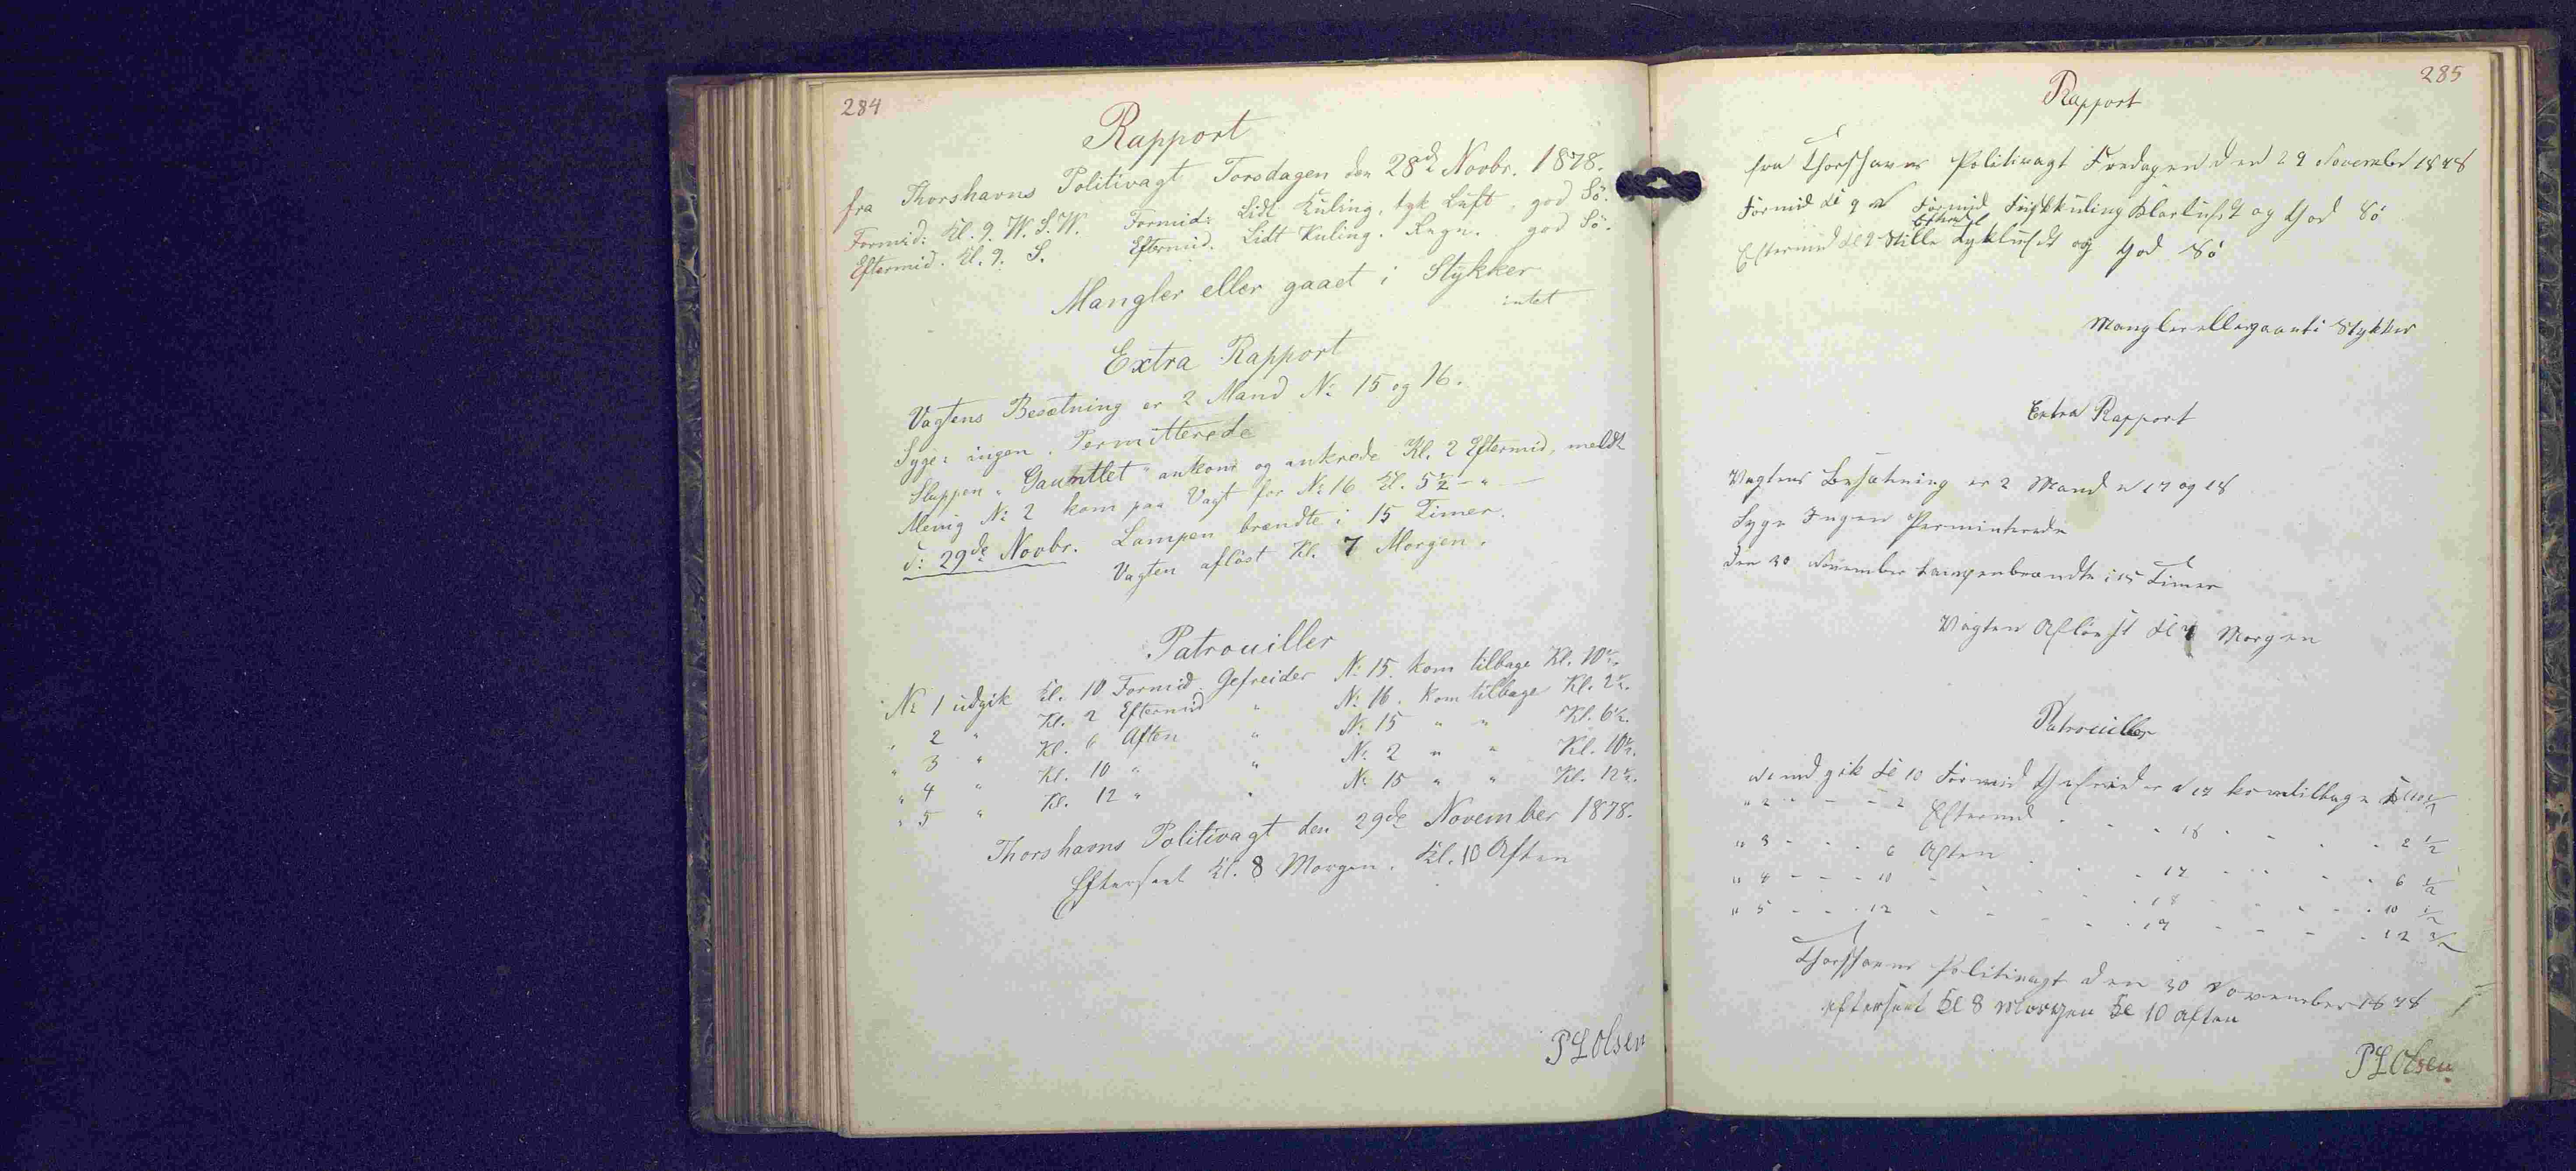 284
Rapport
fra Thorshavns Politivagt Torsdagen den 28de Novbr. 1878.
Formid: Kl. 9. W. S. W. Formid: Lidt Kuling, tyk Luft, god Sö.
Eftermid. Kl. 9. S. Eftermid. Lidt Kuling. Regn. god Sö.
Mangler eller gaaet i Stykker
intet
Extra Rapport
Vagtens Besætning er 2 Mand No 15 og 16.
Syge: ingen. Permitterede
Sluppen "Gauntlet" ankom og ankrede Kl. 2 Eftermid, meldt
Menig No 2 kom paa Vagt for No 16 Kl. 5 1/2 - " -
d: 29de Novbr. Lampen brændte i 15 Timer.
Vagten aflöst Kl. 7 Morgen.
Patrouiller
No 1 udgik Kl. 10 Formid. Gefreider No 15. kom tilbage Kl. 10 1/2.
" 2 " Kl. 2 Eftermid " No 16. kom tilbage Kl. 2 1/2.
" 3 " Kl. 6 Aften " No 15 " " Kl. 6 1/2.
" 4 " Kl. 10 " " No 2 " " Kl. 10 1/2.
" 5 " Kl. 12 " " No 15 " " Kl. 12 1/2.
Thorshavns Politivagt den 29de November 1878.
Efterseet Kl. 8 Morgen. Kl. 10 Aften
P L Olsen
285
Rapport
fra Thorshavns Politivagt Fredagen den 29 November 1878
Formid Kl 9 Formid Friskkuling Klarluft og God Sö
Eftermid
Eftermid Kl 9 Stille Tykluft og God Sö
Mangler eller gaaet i Stykker
Extra Rapport
Vagtens Besætning er 2 Mand N 17 og 18
Syge Ingen Perminterede
Den 30 November Lampen brændte i 15 Timer
Vagten Aflöest Kl 7 Morgen
Patrouiller
N 1 ud gik Kl 10 Formid Gefreider N 17 kom tilbage Kl 10 1/2
" 2 - - - 2 Eftermid - - - 18 - - - 2 1/2
" 3 - - - 6 Aften - - - 17 - - - 6 1/2
" 4 - - - 10 - - - 18 - - - 10 1/2
" 5 - - - 12 - - - 17 - - - 12 1/2
Thorshavns Politivagt den 30 November 1878
efterseet Kl 8 Morgen Kl 10 Aften
P L Olsen